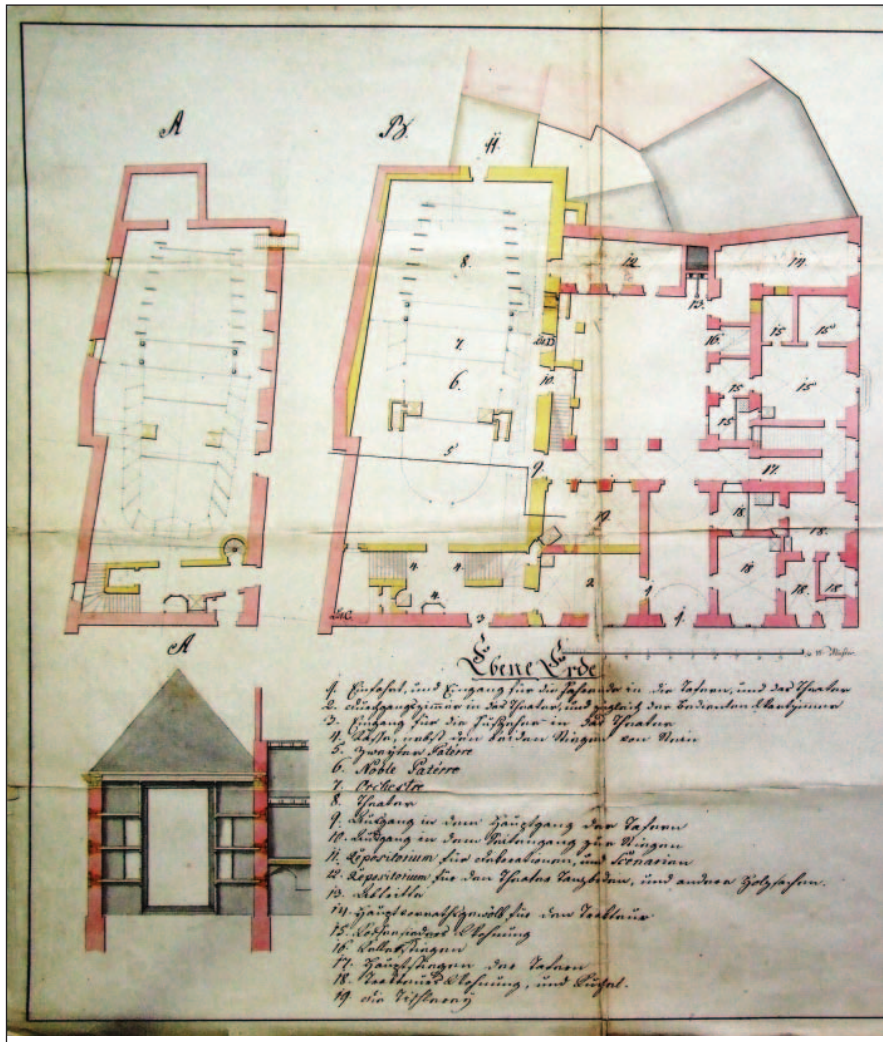 A
B.
11.
8.
7.
6
5
12
14.
13.
16.
15
15
15
15
15
10.
9.
17.
19.
18
18.
18
18.
18
4.
4.
4.
2
3
1.
A
Ebene Erde
1. Einfahrt, und Eingang für die Fahrende in die Tafern, und das Theater
2. durchgangszimmer in das Theater, und zugleich der Bedienten Wartzimer
3. Eingang für die Fußgeher in das Theater
4. Cassa, nebst den beiden Stiegen von Stein
5. Zweyter Paterre
6. Noble Paterre
7. Orchestre
8. Theater
9. Ausgang in dem Hauptgang der Tafern
10. Ausgang in dem Seitengang zur Stiegen
11. Repositorium für dekorationen, und Scenarien
12. Repositorium für den Theater Tanzboden, und andere Holzsachen.
13. Abtritte
14. Hauptvorrathsgewölb für den Trakteur
15. Wohnung
16. Kellerstiegen
17. Hauptstiegen der Tafern
18. Trakteurs Wohnung, und Kuchel.
19. die